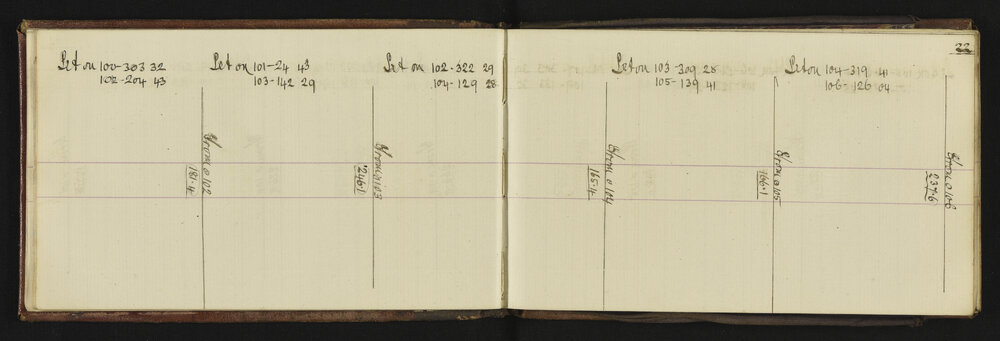 22
Set on 100-303 32
102-204 43
Set on 101-24 43
103-142 29
Set on 102-322 29
104-129 28
Set on 103-309 28
105-139 41
Set on 104-319 41
106-126 04
from @ 102
181·4
from @ 103
246·1
from @ 104
165·4
from @ 105
166·1
from @ 106
237·6